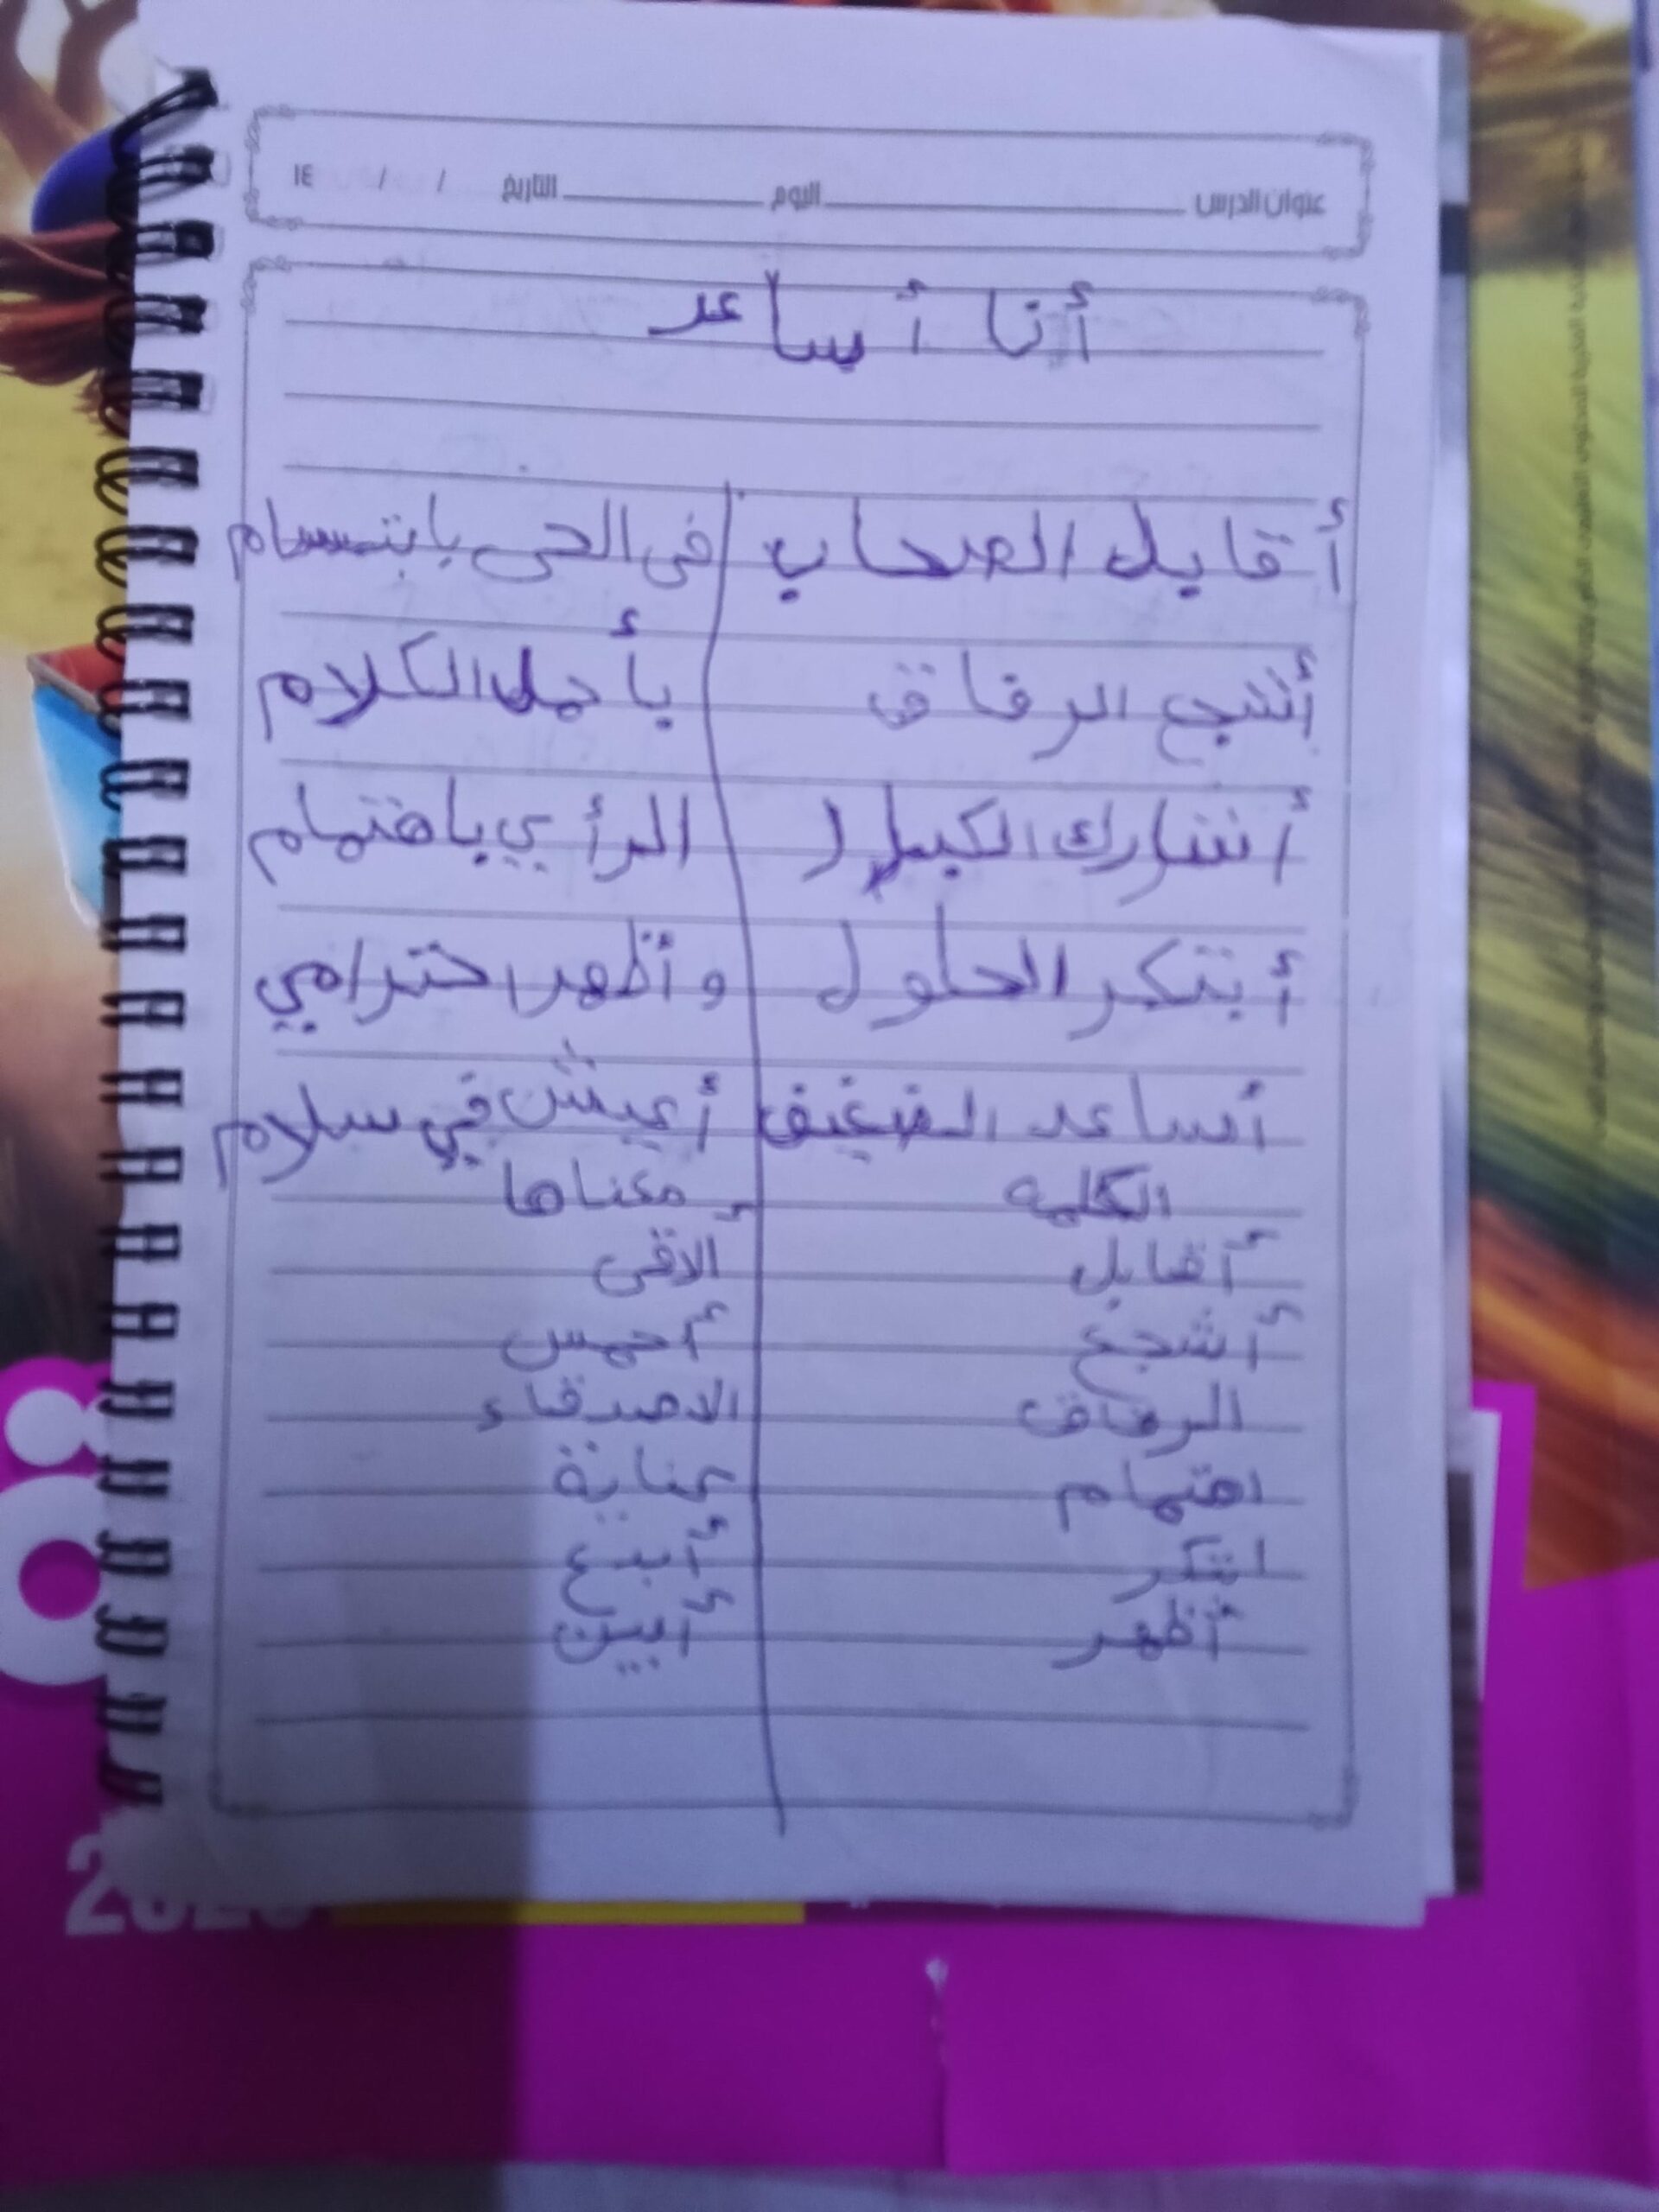 عنوان الدرس اليوم التاريخ / / ١٤
أنا أساعد
أقابل الصحاب في الحي بابتسام
أشجع الرفاق بأجمل الكلام
أشارك الكبار الرأي باهتمام
أبتكر الحلول وأظهر احترامي
أساعد الضعيف أعيش في سلام
الكلمه معناها
أقابل ألاقى
أشجع أحمس
الرفاق الاصدقاء
اهتمام عناية
ابتكر أبدع
أظهر أبين